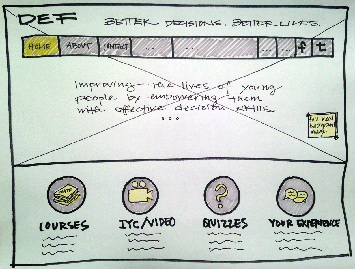 DEF
BETTER DECISIONS. BETTER LIVES.
HOME ABOUT CONTACT ... ... ... ... f t
improving the lives of young
people by empowering them
with effective decision skills
...
COURSES IYC/VIDEO QUIZZES YOUR EXPERIENCE